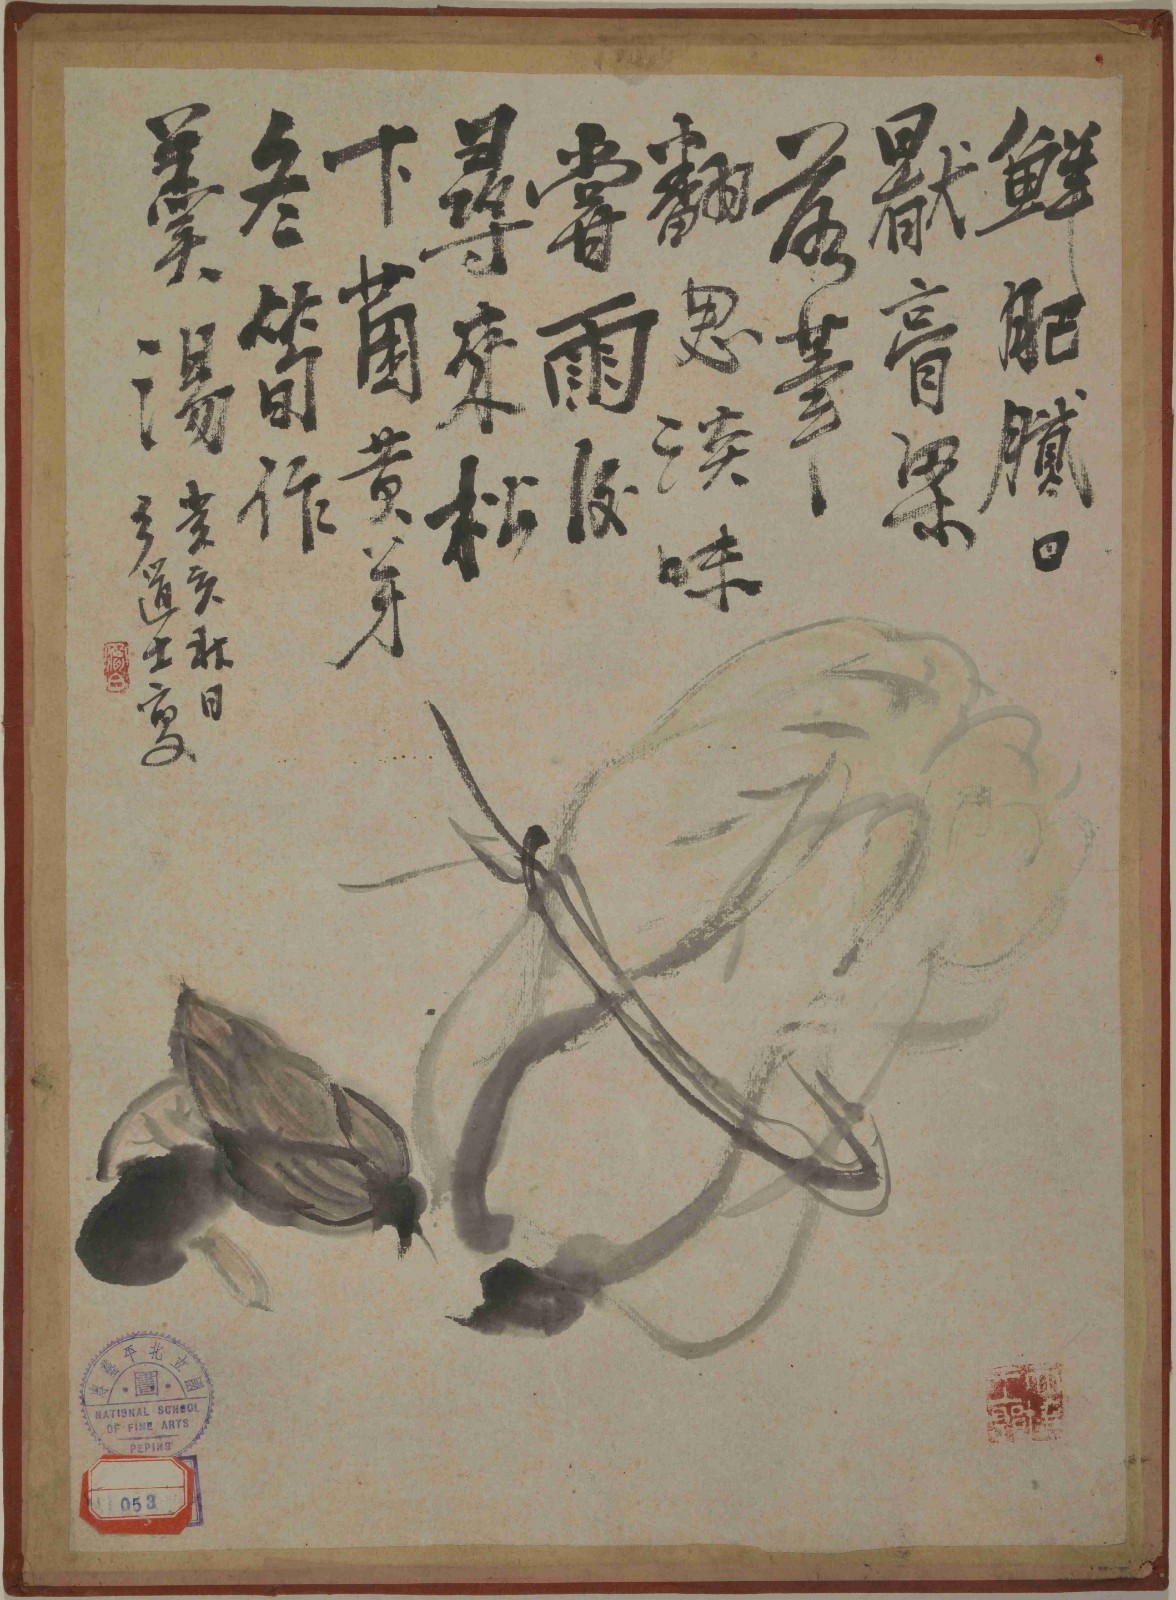 鮮肥膩口
厭膏粱
落筆
翻思淡味
嘗雨後
尋來松
下菌黃芽
冬筍作
羹湯
癸亥秋日
道士寫
國立北平藝專
NATIONAL SCHOOL
OF FINE ARTS
PEPING
053